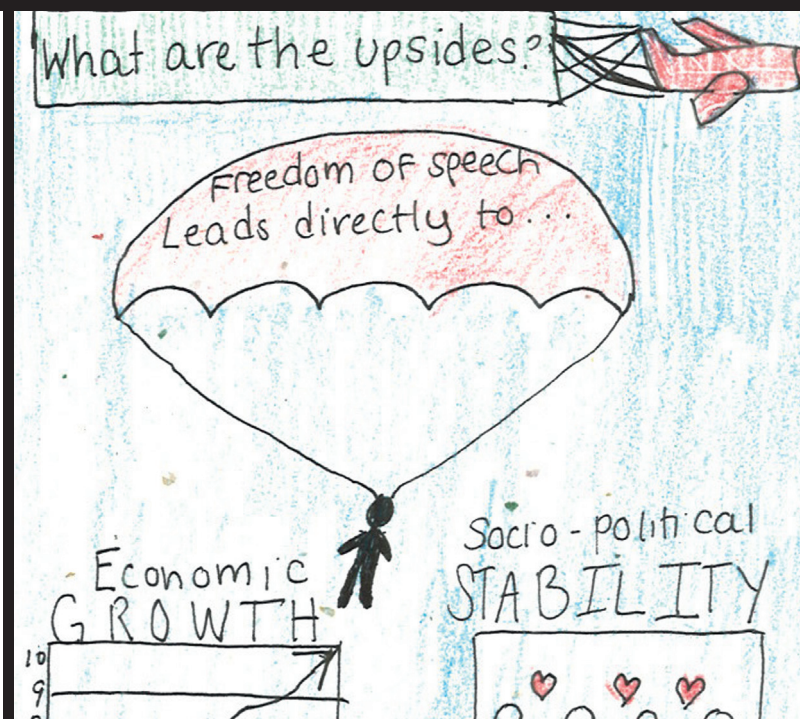 What are the upsides?
Freedom of speech
Leads directly to...
Economic
GROWTH
Socio-political
STABILITY
10
9